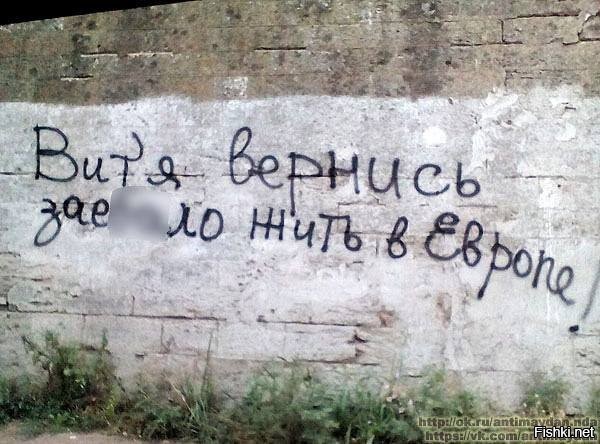 Вит'я вернись
зае ло жить в Европе!
http://ok.ru/antimaydan.nda
https://vk.com/antim
Fishki.net